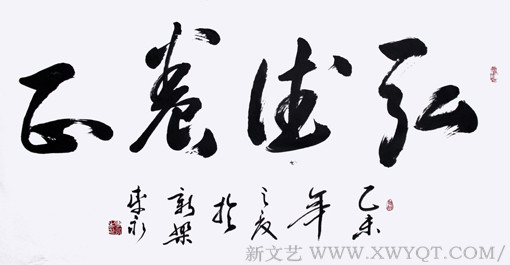 弘德养正
乙未年之夏於新梁
新文艺 WWW.XWYQT.COM/